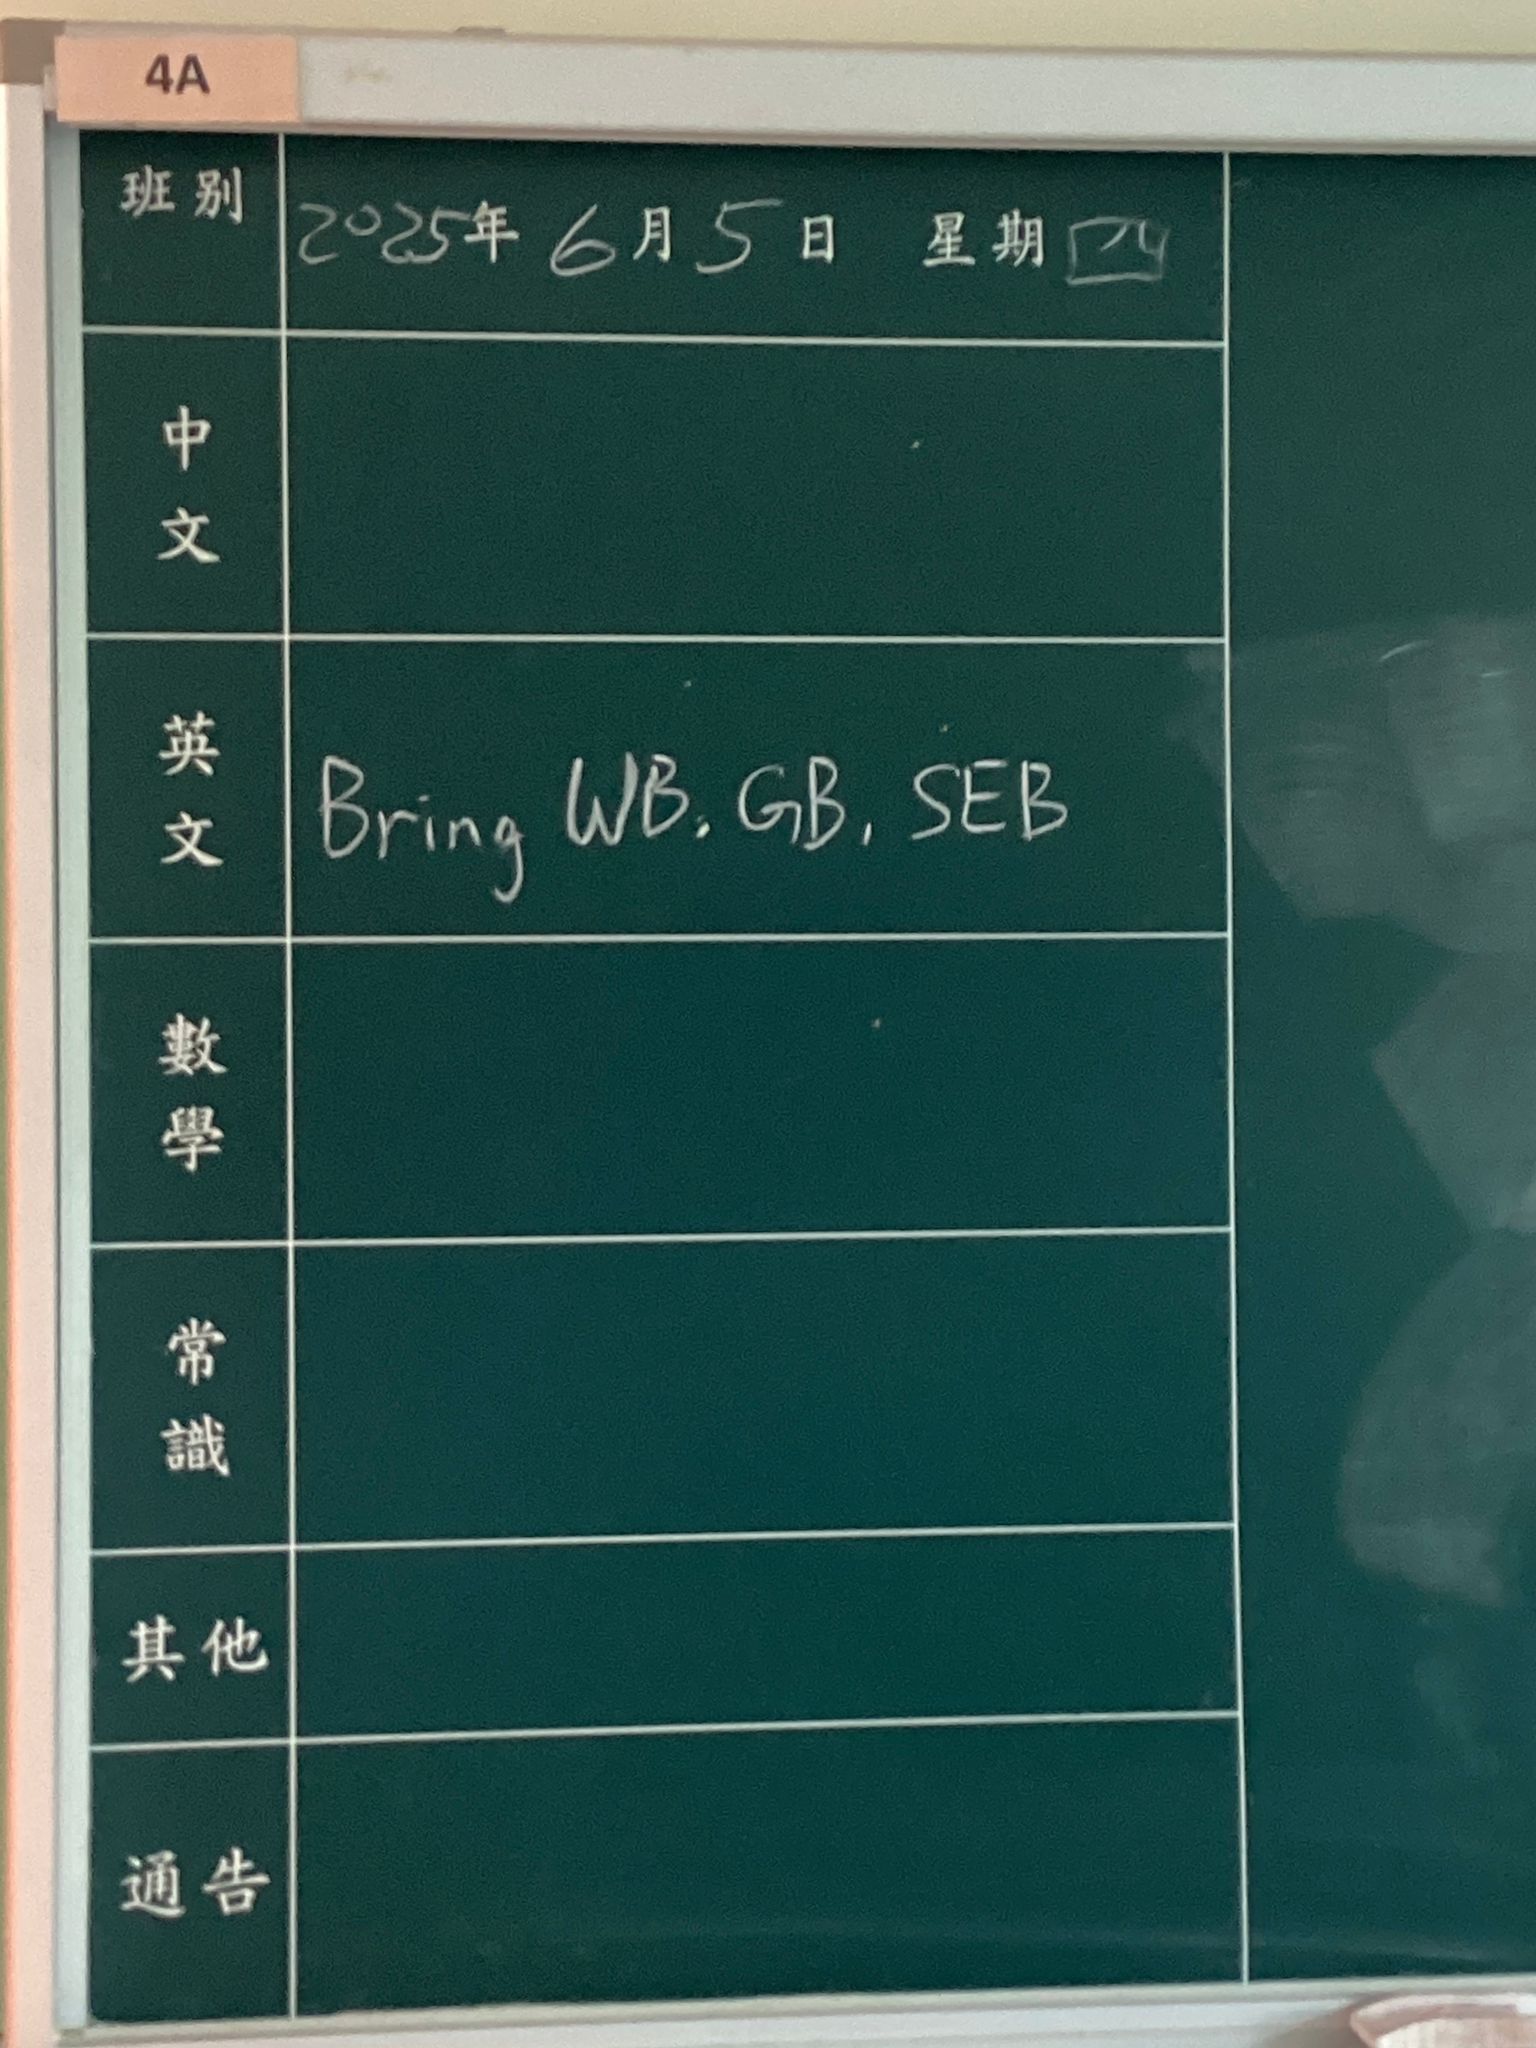 4A
班別 2025年 6月5日 星期四
中文
英文 Bring WB, GB, SEB
數學
常識
其他
通告